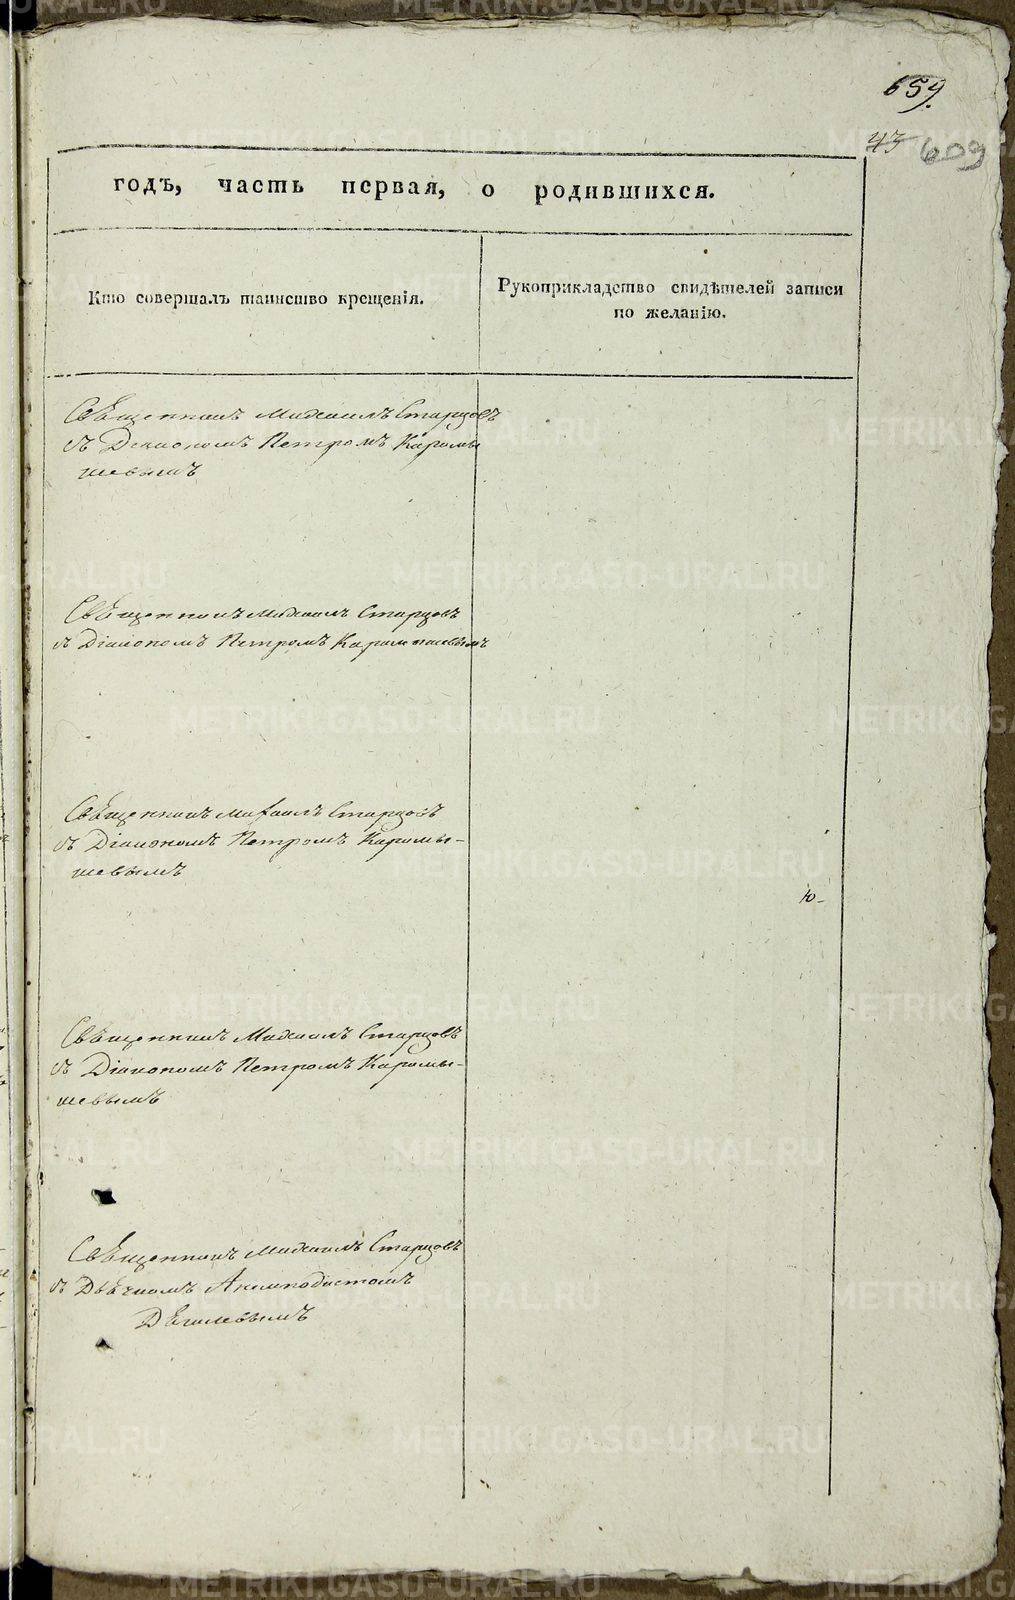 659.
43 609
годъ, часть первая, о родившихся.
Кто совершалъ таинство крещенія.
Рукоприкладство свидѣтелей записи
по желанію.
Священникъ Михаилъ Старцовъ
съ Діакономъ Петромъ Каромы
шевымъ
Священникъ Михаилъ Старцовъ
съ Діакономъ Петромъ Каромышевымъ
Священникъ Михаилъ Старцовъ
съ Діакономъ Петромъ Каромы-
шевымъ
ю-
Священникъ Михаилъ Старцовъ
съ Діакономъ Петромъ Каромы-
шевымъ
Священникъ Михаилъ Старцовъ
съ Дьячкомъ
METRIKI.GASO-URAL.RU